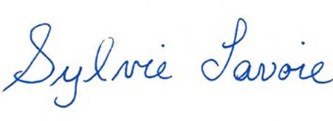 Sylvie Savoie